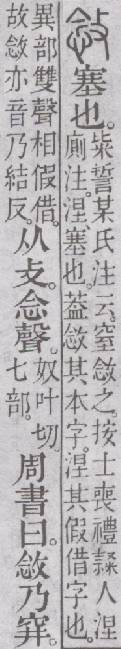 敜塞也。粊誓某氏注云。窒敜之。按士喪禮隸人涅廁注。涅、塞也。葢敜其本字。涅其假借字也。
異部雙聲相假借。故敜亦音乃結反。从攴。念聲。奴叶切七部。周書曰。敜乃穽。